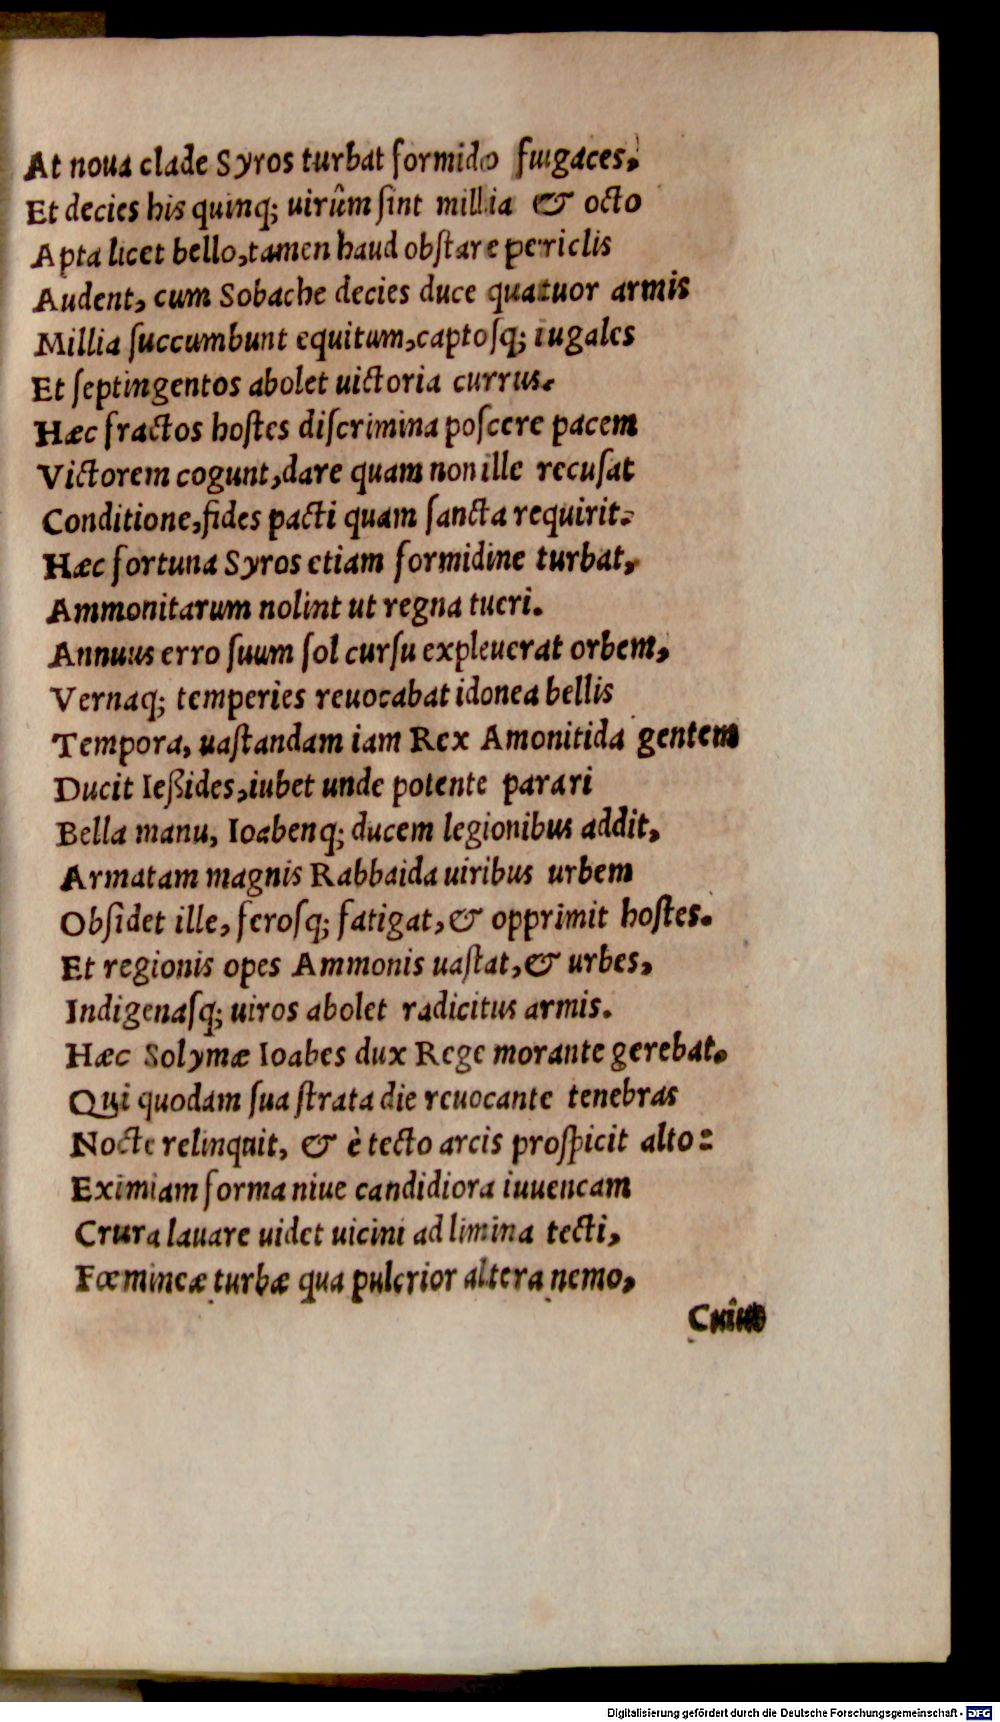 At noua clade Syros turbat formido fugaces,
Et decies his quinq; uirûm sint millia & octo
Apta licet bello, tamen haud obstare periclis
Audent, cum Sobache decies duce quatuor armis
Millia succumbunt equitum, captosq; iugales
Et septingentos abolet uictoria currus.
Hæc fractos hostes discrimina poscere pacem
Victorem cogunt, dare quam non ille recusat
Conditione, fides pacti quam sancta requirit.
Hæc fortuna Syros etiam formidine turbat,
Ammonitarum nolint ut regna tueri.
Annuus erro suum sol cursu expleuerat orbem,
Vernaq; temperies reuocabat idonea bellis
Tempora, uastandam iam Rex Amonitida gentem
Ducit Ießides, iubet unde potente parari
Bella manu, Ioabenq; ducem legionibus addit,
Armatam magnis Rabbaida uiribus urbem
Obsidet ille, ferosq; fatigat, & opprimit hostes.
Et regionis opes Ammonis uastat, & urbes,
Indigenasq; uiros abolet radicitus armis.
Hæc Solymæ Ioabes dux Rege morante gerebat.
Qui quodam sua strata die reuocante tenebras
Nocte relinquit, & è tecto arcis prospicit alto:
Eximiam forma niue candidiora iuuencam
Crura lauare uidet uicini ad limina tecti,
Fœmineæ turbæ qua pulcrior altera nemo,
Digitalisierung gefördert durch die Deutsche Forschungsgemeinschaft - DFG